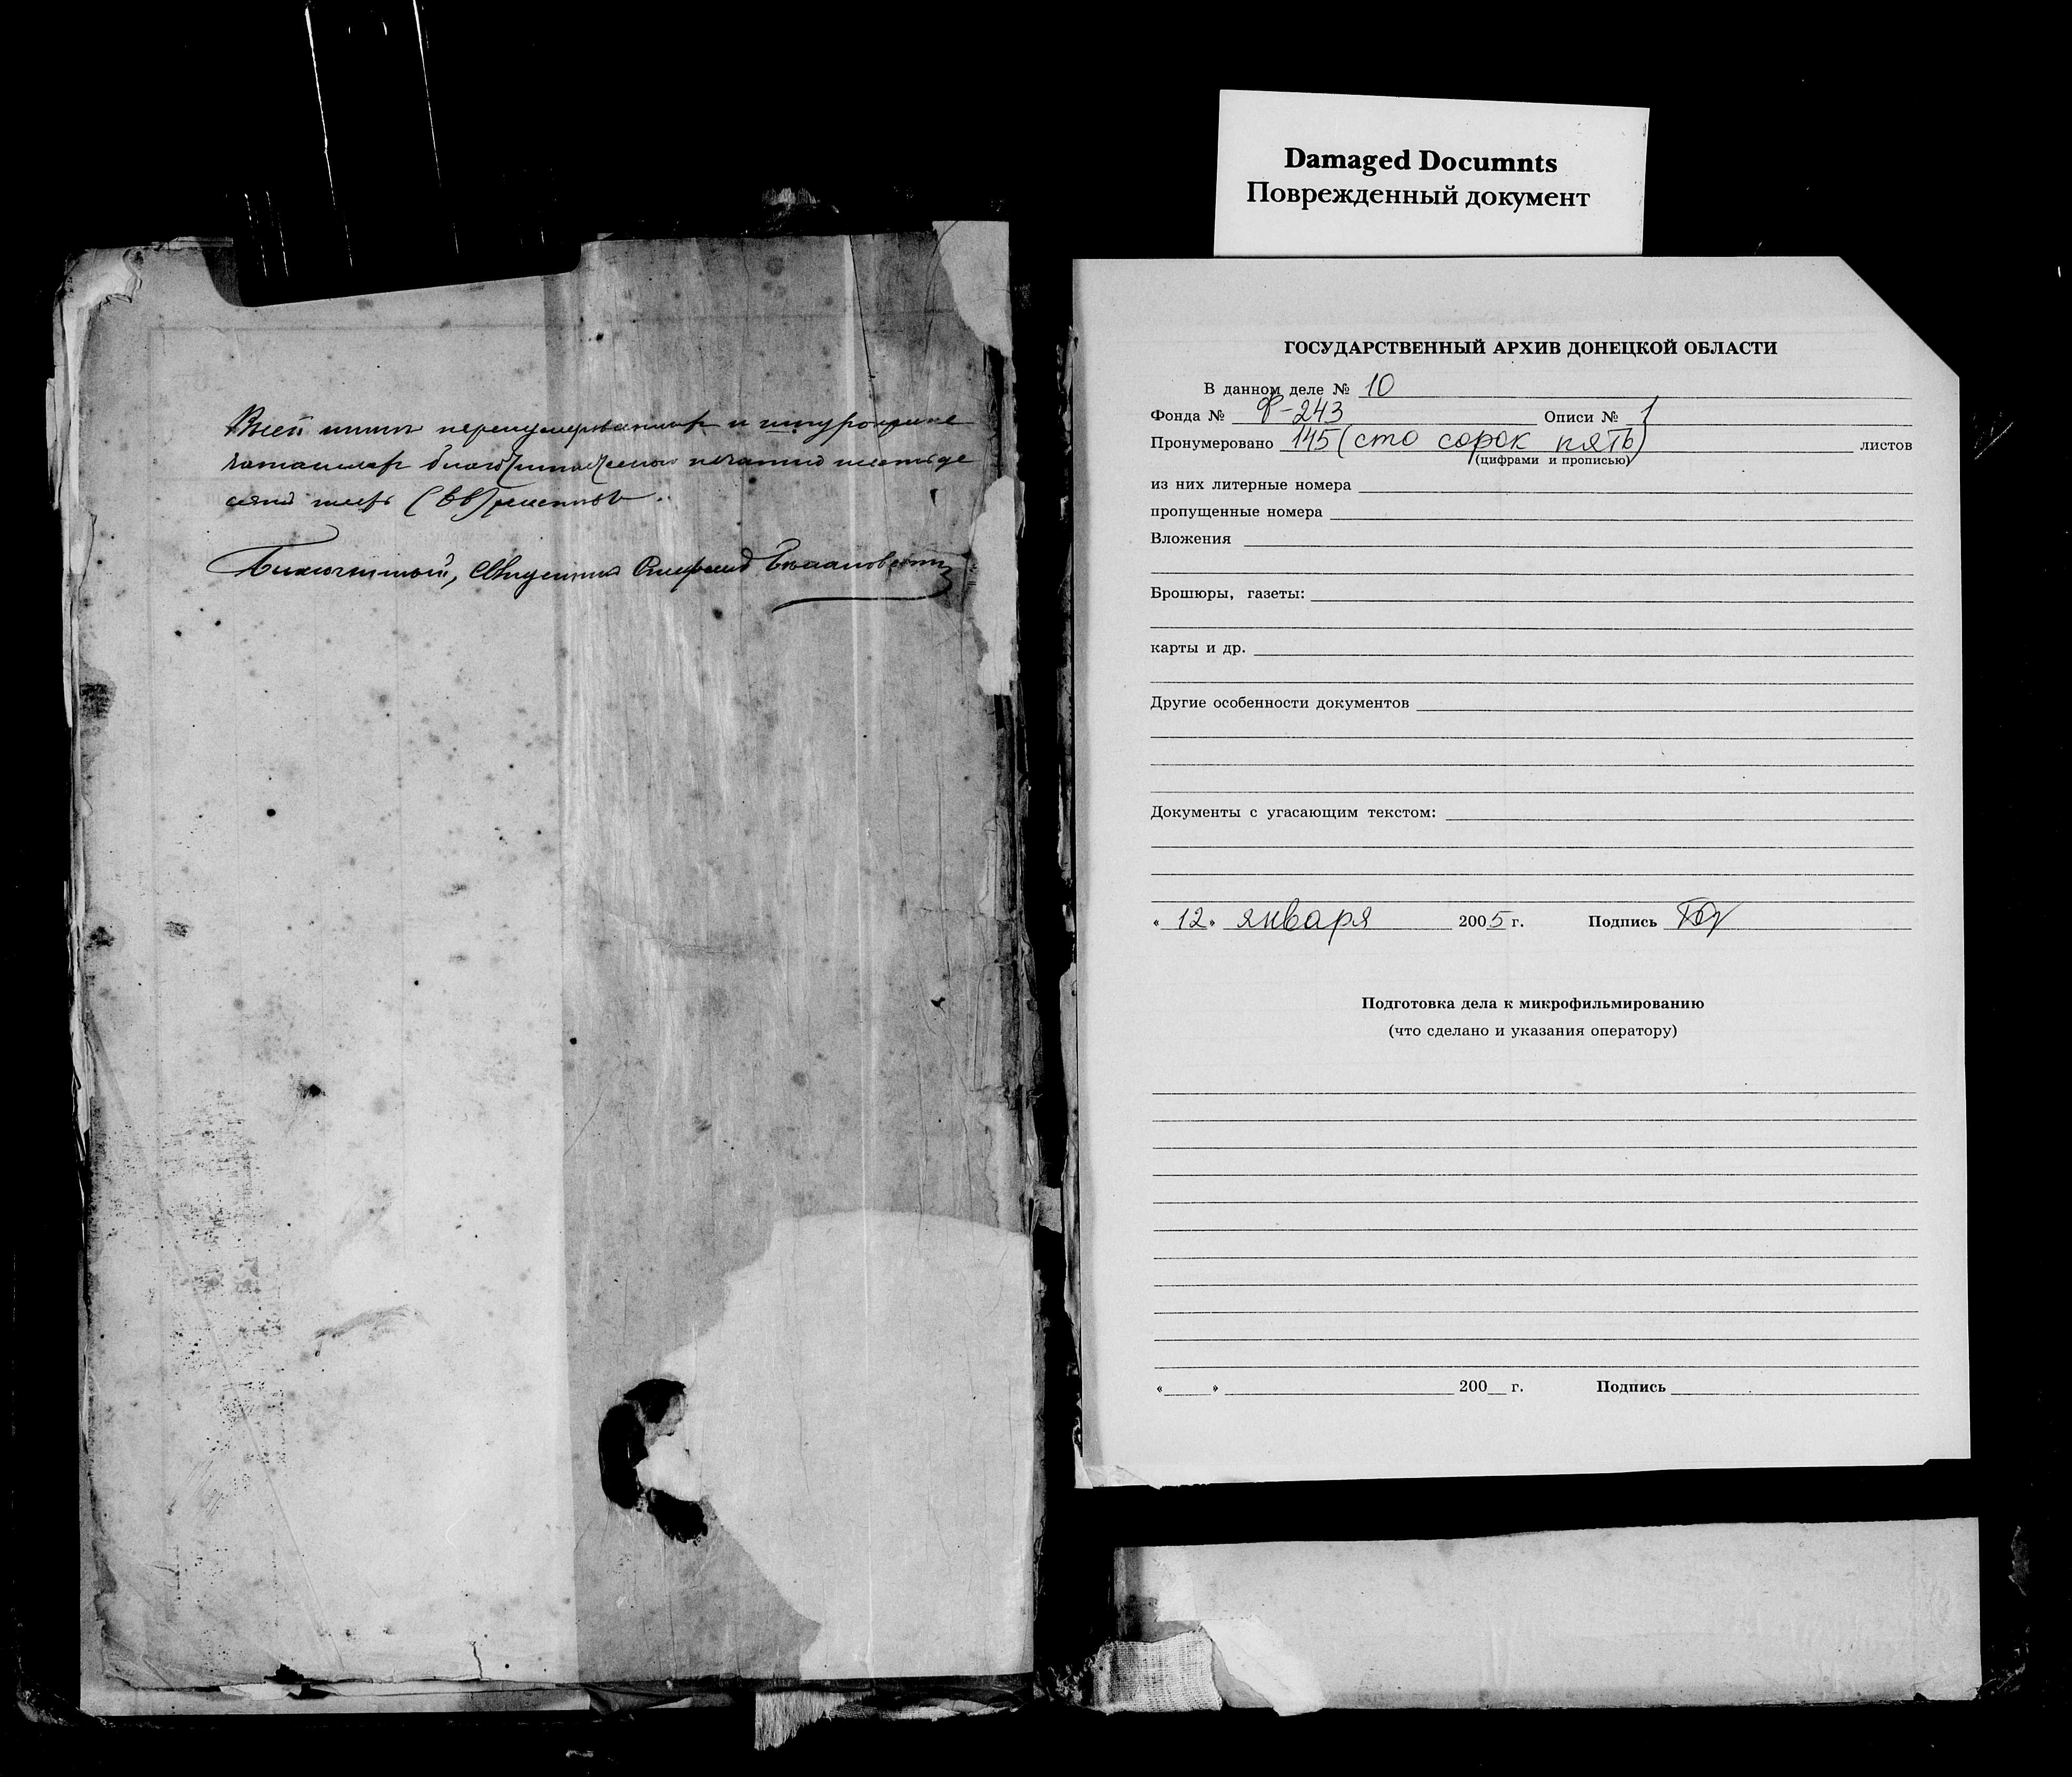 Всей перенумерованныхъ и шнуромъ
печатью шестьде
сятъ шесть (66)
Благочинный, Священникъ
Damaged Documnts
Поврежденный документ
ГОСУДАРСТВЕННЫЙ АРХИВ ДОНЕЦКОЙ ОБЛАСТИ
В данном деле № 10
Фонда № Ф-243 Описи № 1
Пронумеровано 145 (сто сорок пять) листов
(цифрами и прописью)
из них литерные номера
пропущенные номера
Вложения
Брошюры, газеты:
карты и др.
Другие особенности документов
Документы с угасающим текстом:
« 12 » января 2005 г. Подпись
Подготовка дела к микрофильмированию
(что сделано и указания оператору)
« » 200 г. Подпись